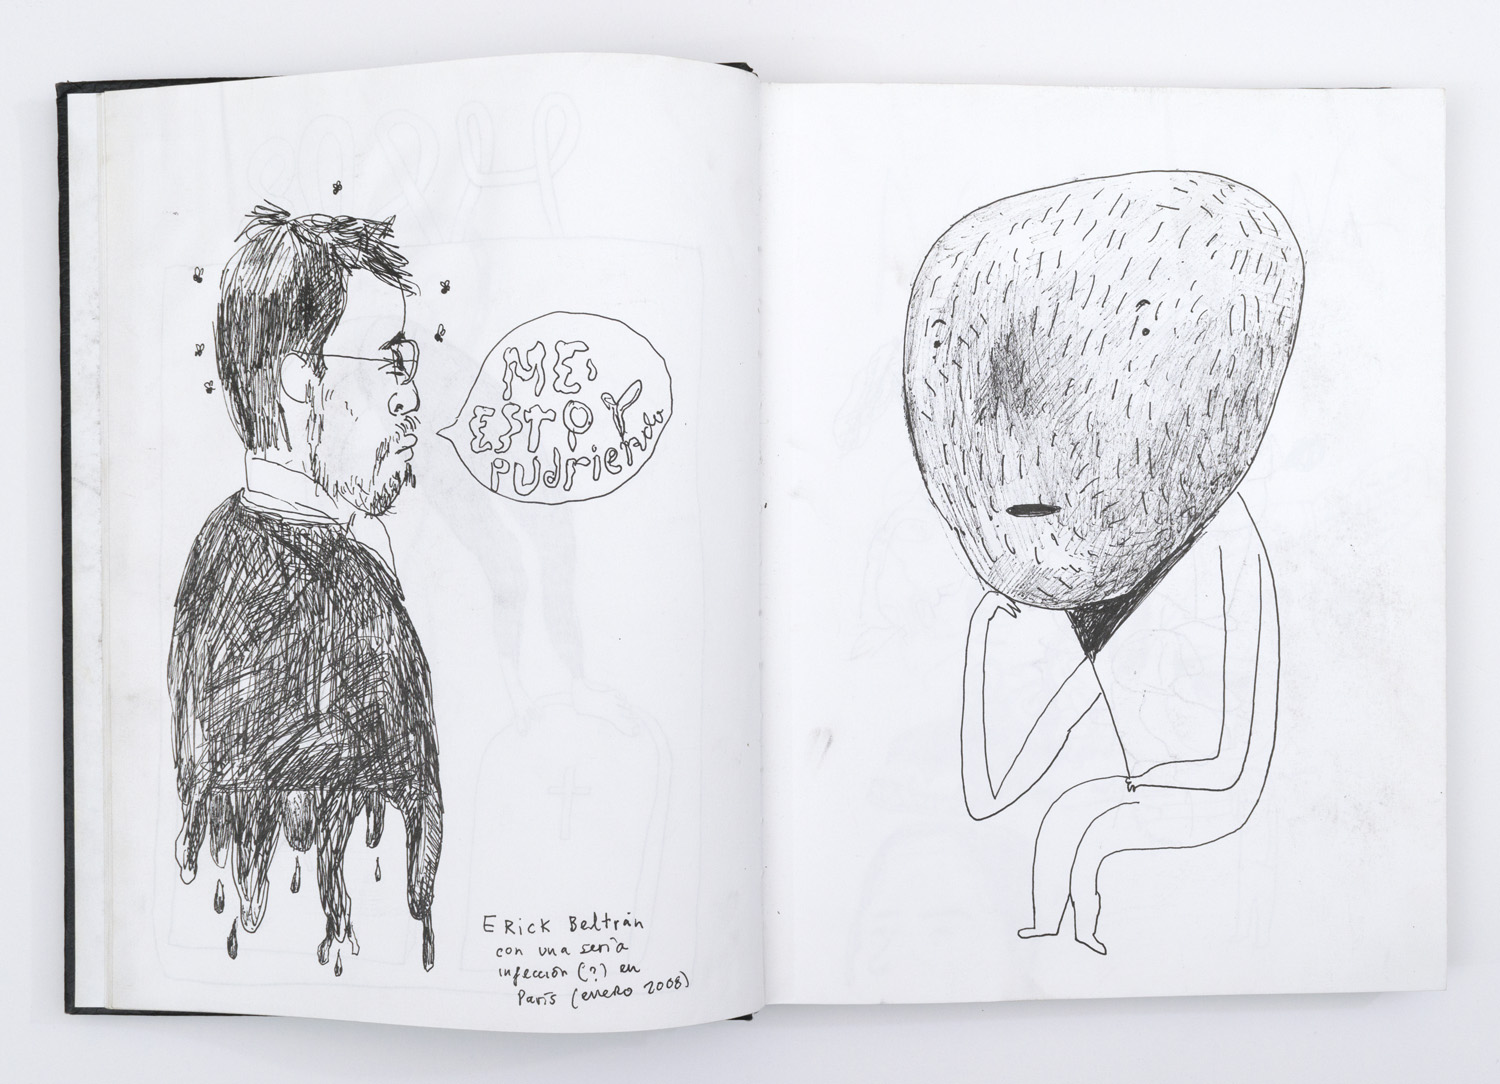 ME
ESTOY
pudriendo
ERick Beltrán
con una seria
infección (?) en
París (enero 2008)